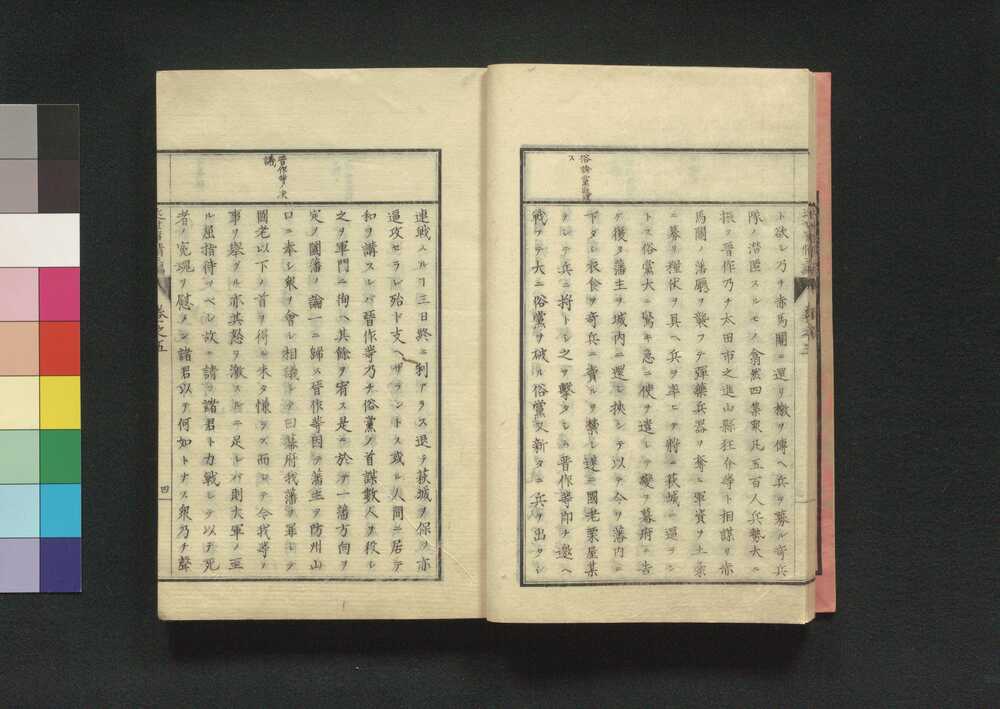 俗論黨敗走
ス
ト欲シ乃チ赤馬關ニ還リ檄ヲ傳ヘ兵ヲ募ル奇兵
隊ノ潜匿スルモノ翕然四集衆凡五百人兵勢大ニ
振フ晋作乃チ太田市之進山縣狂介等ト相謀リ赤
馬關ノ藩廳ヲ襲フテ彈藥兵器ヲ奪ニ軍資ヲ土豪
ニ募リ糧仗ヲ具ヘ兵ヲ率ヒテ將ニ萩城ニ逼ラン
トス俗黨大ニ驚キ急ニ使ヲ遣シテ變ヲ幕府ニ告
ケ復タ藩主ヲ城内ニ還シ挾ンテ以テ令ヲ藩内ニ
下タシ衣食ヲ奇兵ニ賣ルヲ禁シ遂ニ國老粟屋某
ヲシテ兵ニ將トシ之ヲ擊タシム晋作等即チ邀ヘ
戰フテ大ニ俗黨ヲ破ル俗黨又新タニ兵ヲ出タシ
晋作等ノ決
議
連戰スルヿ三日終ニ利アラス退テ萩城ヲ保ツ亦
逼攻セラレ殆ト支ヘザラントス或ル人間ニ居テ
和ヲ講スレバ晋作等乃チ俗黨ノ首謀數人ヲ殺シ
之ヲ軍門ニ徇ヘ其餘ヲ宥ス是ニ於テ一藩方向ヲ
定メ國藩ノ論一ニ歸ス晋作等因テ藩主ヲ防州山
口ニ奉シ衆ヲ會シ相議シテ曰幕府我藩ヲ罪シテ
國老以下ノ首ヲ得ル未タ慊ラズ而シテ今我等ノ
事ヲ擧グル亦其怒ヲ激スルニ足レバ則大軍ノ至
ル屈指待ツベシ故ニ請フ諸君ト力戰シテ以テ死
者ノ冤魂ヲ慰メン諸君以テ何如トナス衆乃チ聲
卷之五
四